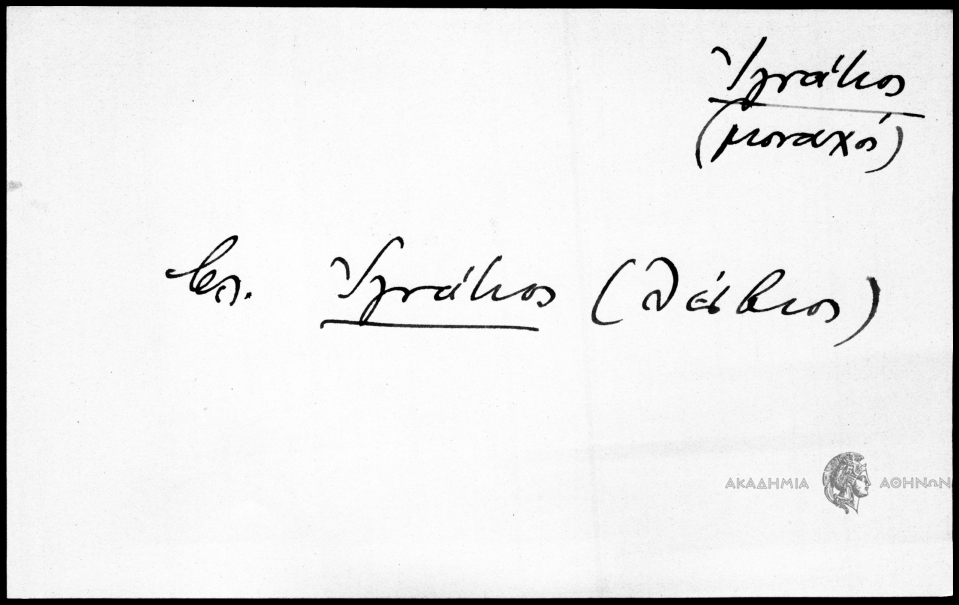 Ἰγνάτιος
(μοναχός)
βλ. Ἰγνάτιος (Λέσβιος)
ΑΚΑΔΗΜΙΑ ΑΘΗΝΩΝ